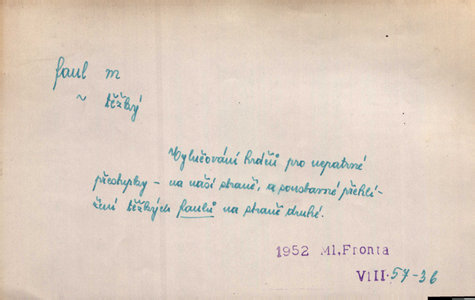 faul m
~ těžký
Vylučování hráčů pro nepatrné
přestupky – na naší straně, a soustavné přehlí-
žení těžkých faulů na straně druhé.
1952 Ml. Fronta
VIII. 57-36